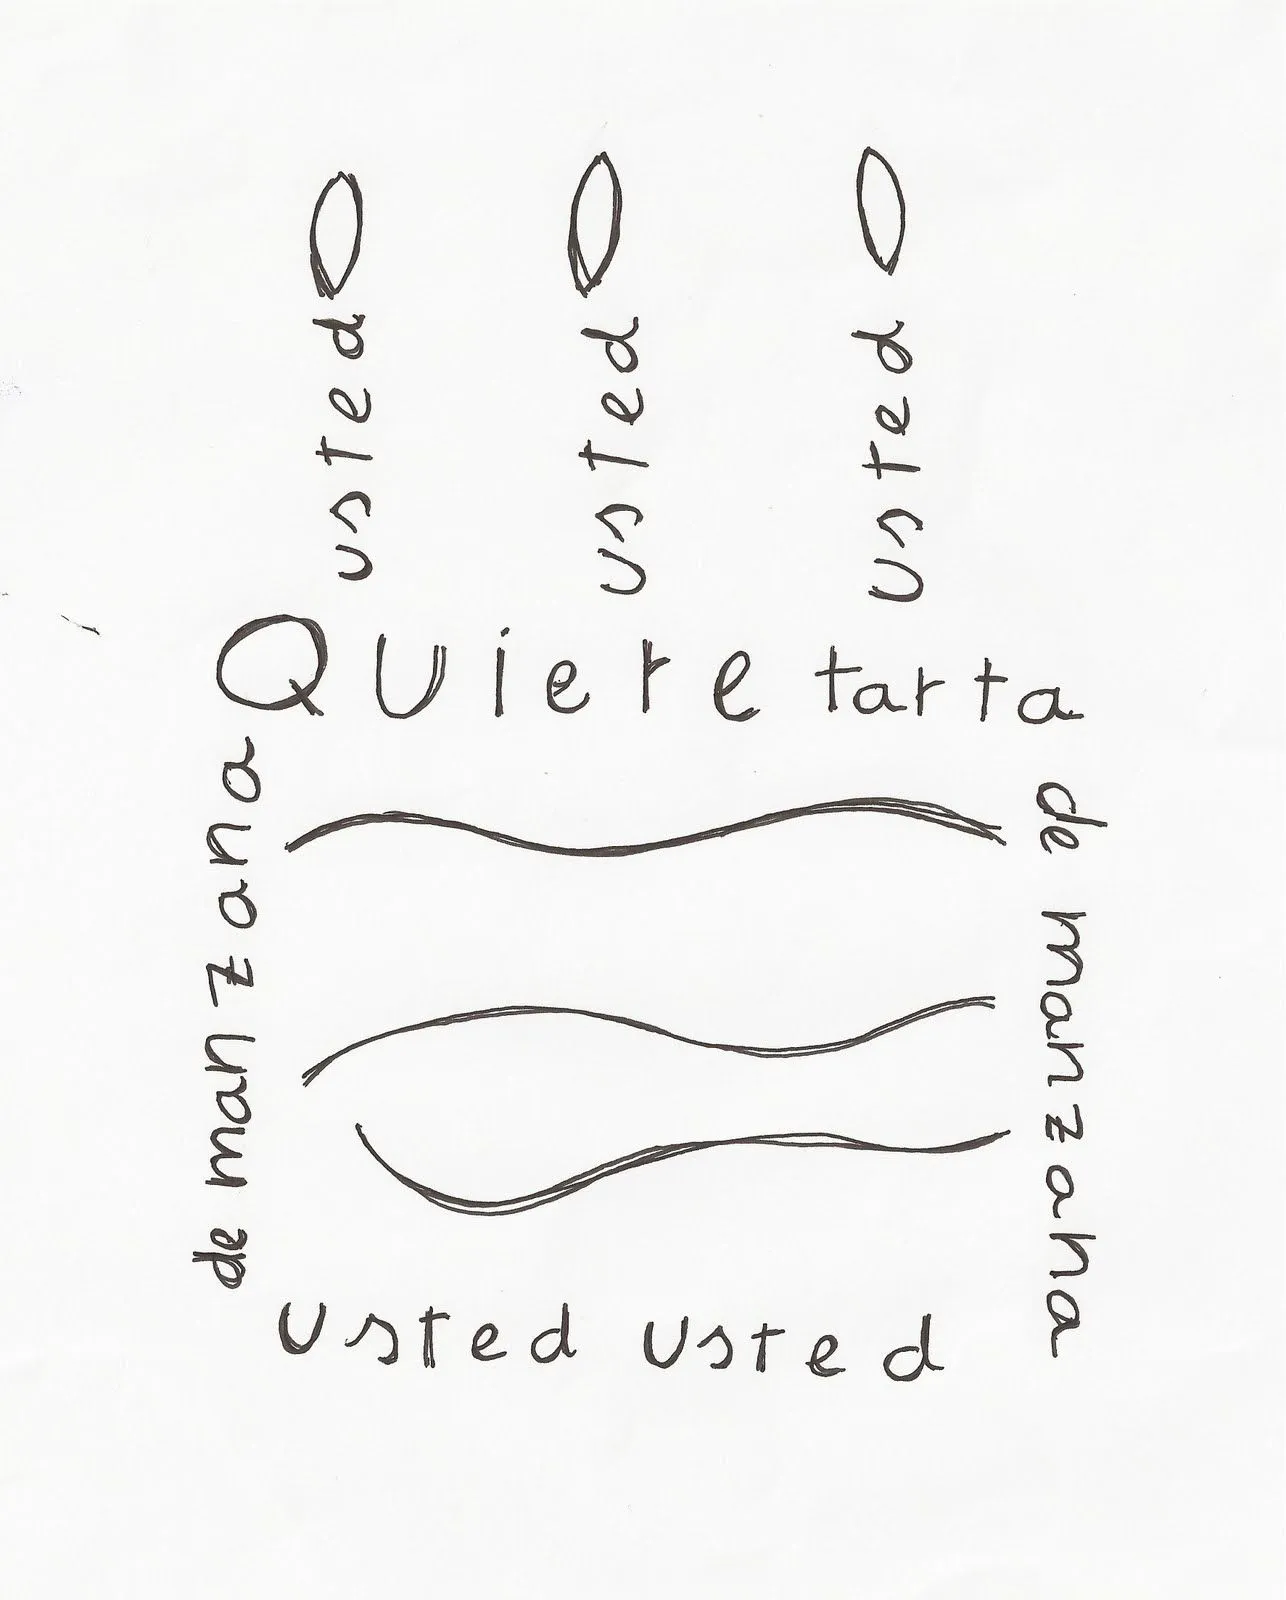 usted
usted
usted
Quiere tarta
de manzana
de manzana
usted usted